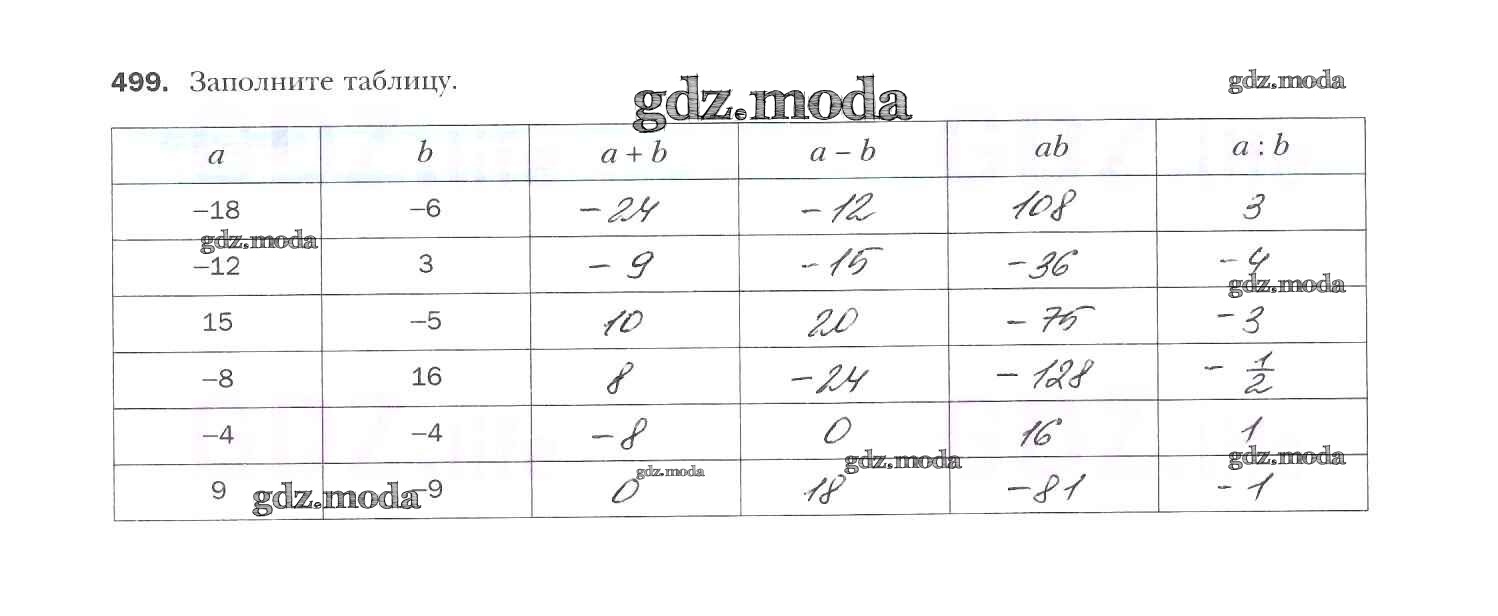 499. Заполните таблицу.
gdz.moda
gdz.moda
a b a + b a – b ab a : b
–18 –6 –24 –12 108 3
gdz.moda
–12 3 –9 –15 –36 –4
gdz.moda
15 –5 10 20 –75 –3
–8 16 8 –24 –128 –1/2
–4 –4 –8 0 16 1
gdz.moda gdz.moda gdz.moda
9 –9 0 18 –81 –1
gdz.moda